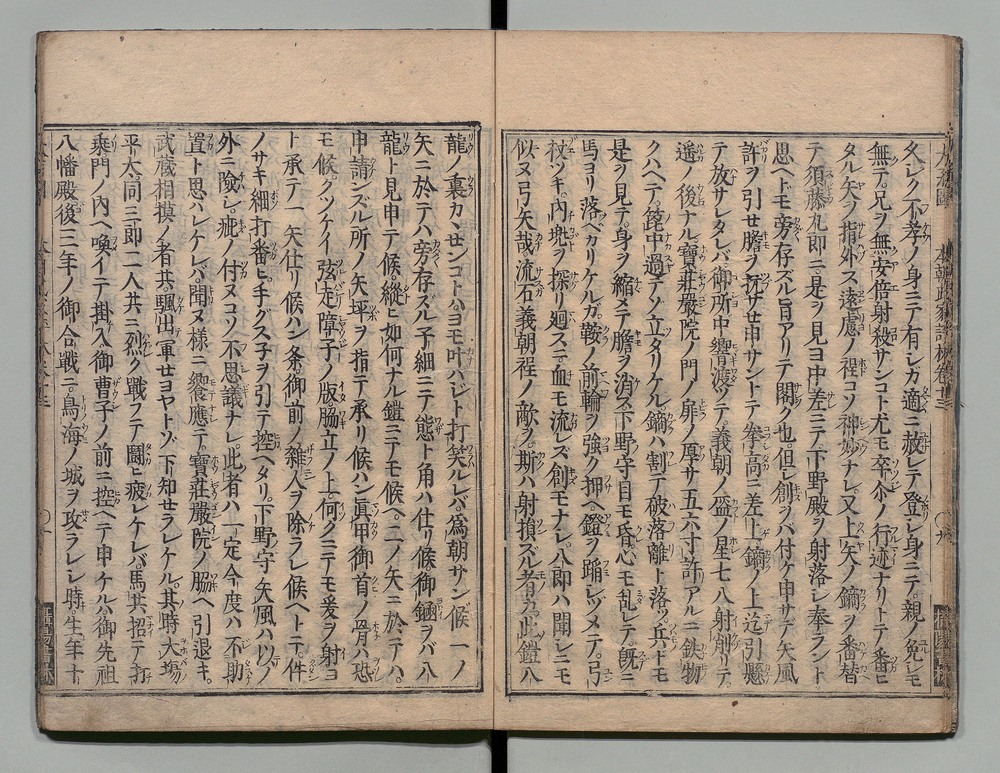 久シク不孝ノ身ニテ有シカ適ニ赦レテ登レ身ニテ。親ノ免シモ
無テ。兄ヲ無安倍射殺サンコト尤モ卒尒ノ行迹ナリトテ番ヒ
タル矢ヲ指外ス遠慮ノ程コソ神妙ナレ。又上矢ノ鏑ヲ番替
テ須藤九郎ニ。是ヲ見ヨ中差ニテ下野殿ヲ射落シ奉ラント
思ヘドモ旁存ズル旨アリテ閣ク也。但シ創ヲバ付ケ申サデ矢風
許ヲ引セ膽ヲ抔セ申サントテ拳高ニ差上鏑ノ上迄引懸
テ放サレタレバ御所中響渡テ。義朝ノ盔ノ星七八射削リテ。
遙ノ後ナル寶莊嚴院ノ門ノ扉ノ厚サ五六寸許アルニ鉄物
クハヘテ。箆中過テソ立タリケル鏑ハ割テ破落離ト落ツ。兵共モ
是ヲ見テ。身ヲ縮メテ膽ヲ消ス下野守目モ昏心モ乱レテ。既ニ
馬ヨリ落ベカリケルガ。鞍ノ前輪ヲ強ク押ヘ。鐙ヲ踊シツメテ。弓
杖ツキ。内兜ヲ探リ廻スニ。血モ流レズ創モナシ。八郎ハ聞シニモ
似ヌ弓矢哉。流石義朝程ノ敵ヲ。斯ハ射損ズル者カ。此鎧八
龍ノ裏カヽセンコトハヨモ叶ハジト打笑ルレバ。爲朝サン候一ノ
矢ニ於テハ旁存ズル子細ニテ態ト角ハ仕リ候御鎧ヲバ八
龍ト見申テ候。縱ヒ如何ナル鎧ニテモ候ヘ。二ノ矢ニ於テハ。
申請ンズル所ノ矢坪ヲ指テ承リ候ハン眞甲御首ノ骨ハ恐
モ候。クツケイ弦走障子ノ版脇立ノ上。何クニテモ爰ヲ射ヨ
ト承テ一矢仕リ候ハン条。御前ノ雜人ヲ除ラレ候ヘトテ。件
ノサキ細打番ヒ。手グスネヲ引テ控ヘタリ。下野守矢風ハ以ノ
外ニ險シ。疵ノ付ヌコソ不思議ナレ。此者ハ一定今度ハ不助
置ト思ハレケレバ。聞ヌ様ニ饗應テ寶莊嚴院ノ脇ヘ引退キ。
武蔵相摸ノ者共。颿出軍セヨヤトゾ下知セラレケル。其時大塲
平太。同三郎二人共ニ烈ク戰フテ鬪ヒ疲レケレバ。馬共招テ打
乘門ノ内ヘ喚イテ掛入御曹子ノ前ニ控ヘテ申ケルハ御先祖
八幡殿後三年ノ御合戰ニ。鳥海ノ城ヲ攻ラレシ時。生年十